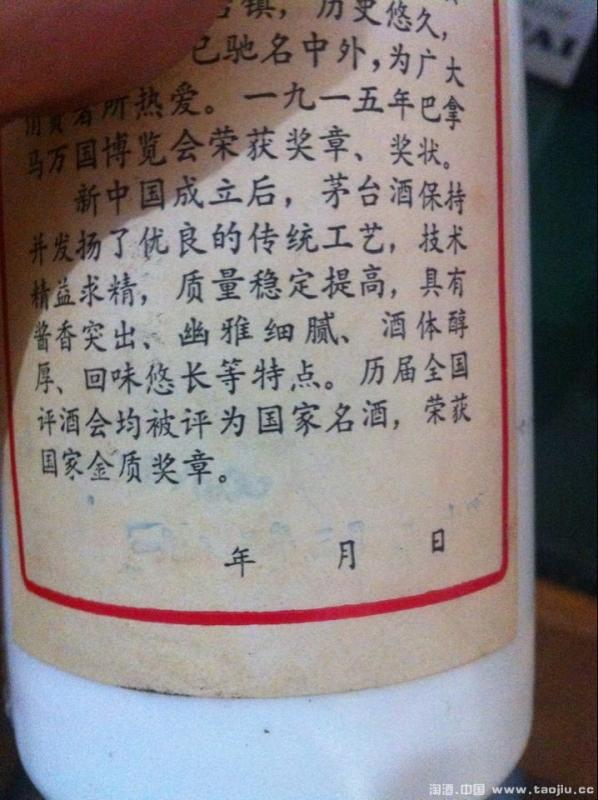 台镇，历史悠久，
已驰名中外，为广大
消费者所热爱。一九一五年巴拿
马万国博览会荣获奖章、奖状。
新中国成立后，茅台酒保持
并发扬了优良的传统工艺，技术
精益求精，质量稳定提高，具有
酱香突出、幽雅细腻、酒体醇
厚、回味悠长等特点。历届全国
评酒会均被评为国家名酒，荣获
国家金质奖章。
年 月 日
淘酒.中国 www.taojiu.cc